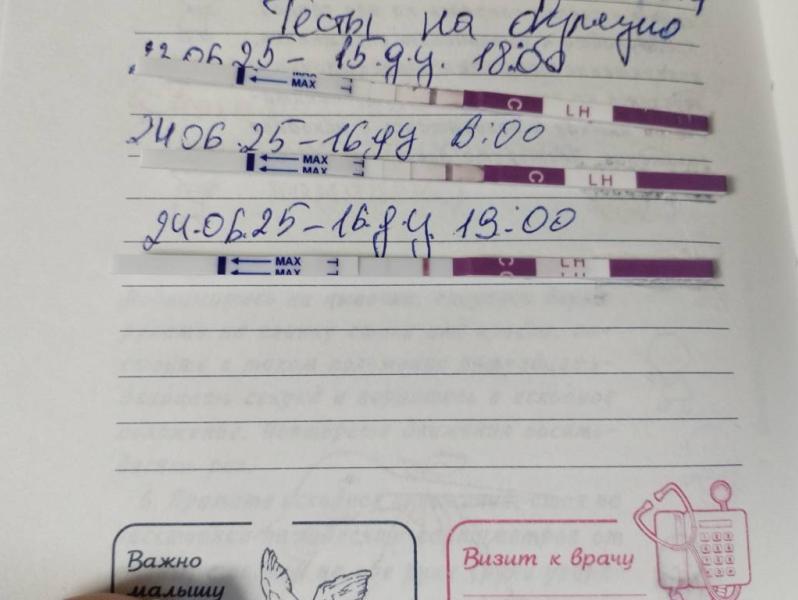 Тесты на овуляцию
06.25 - 15.д.ц. 18:00
MAX C LH
24 06.25 - 16 д ц 8:00
MAX C LH
MAX
24.06.25 - 16.д ц. 19:00
MAX C LH
MAX C LH
Важно Визит к врачу
малышу